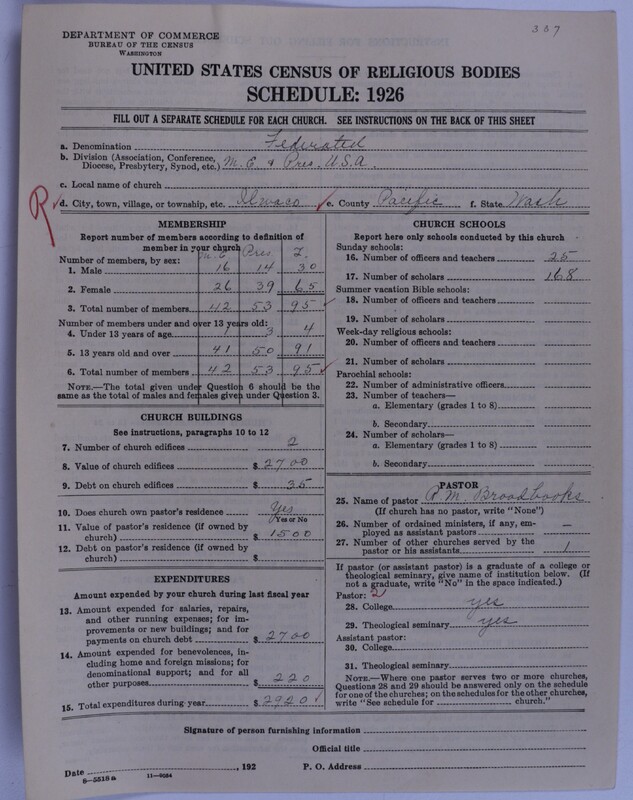 337
DEPARTMENT OF COMMERCE
BUREAU OF THE CENSUS
WASHINGTON
UNITED STATES CENSUS OF RELIGIOUS BODIES
SCHEDULE: 1926
FILL OUT A SEPARATE SCHEDULE FOR EACH CHURCH. SEE INSTRUCTIONS ON THE BACK OF THIS SHEET
a. Denomination Federated
b. Division (Association, Conference, Diocese, Presbytery, Synod, etc.) M.E. & Pres. U.S.A.
c. Local name of church
R
d. City, town, village, or township, etc. Ilwaco e. County Pacific f. State Wash
MEMBERSHIP
Report number of members according to definition of member in your church
Number of members, by sex: M.E. Pres. T.
1. Male 16 14 30
2. Female 26 39 65
3. Total number of members 42 53 95
Number of members under and over 13 years old:
4. Under 13 years of age 1 3 4
5. 13 years old and over 41 50 91
6. Total number of members 42 53 95
NOTE.—The total given under Question 6 should be the same as the total of males and females given under Question 3.
CHURCH BUILDINGS
See instructions, paragraphs 10 to 12
7. Number of church edifices 2
8. Value of church edifices $ 2700
9. Debt on church edifices $ 35
10. Does church own pastor's residence Yes
Yes or No
11. Value of pastor's residence (if owned by church) $ 1500
12. Debt on pastor's residence (if owned by church) $
EXPENDITURES
Amount expended by your church during last fiscal year
13. Amount expended for salaries, repairs, and other running expenses; for improvements or new buildings; and for payments on church debt $ 2700
14. Amount expended for benevolences, including home and foreign missions; for denominational support; and for all other purposes $ 220
15. Total expenditures during year $ 2920
CHURCH SCHOOLS
Report here only schools conducted by this church
Sunday schools:
16. Number of officers and teachers 25
17. Number of scholars 168
Summer vacation Bible schools:
18. Number of officers and teachers
19. Number of scholars
Week-day religious schools:
20. Number of officers and teachers
21. Number of scholars
Parochial schools:
22. Number of administrative officers
23. Number of teachers—
a. Elementary (grades 1 to 8)
b. Secondary
24. Number of scholars—
a. Elementary (grades 1 to 8)
b. Secondary
PASTOR
25. Name of pastor P.M. Broadbooks
(If church has no pastor, write "None")
26. Number of ordained ministers, if any, employed as assistant pastors —
27. Number of other churches served by the pastor or his assistants 1
If pastor (or assistant pastor) is a graduate of a college or theological seminary, give name of institution below. (If not a graduate, write "No" in the space indicated.)
Pastor: 2
28. College yes
29. Theological seminary yes
Assistant pastor:
30. College
31. Theological seminary
NOTE.—Where one pastor serves two or more churches, Questions 28 and 29 should be answered only on the schedule for one of the churches; on the schedules for the other churches, write "See schedule for church."
Signature of person furnishing information
Official title
Date , 192 P. O. Address
8—5518a 11—9034